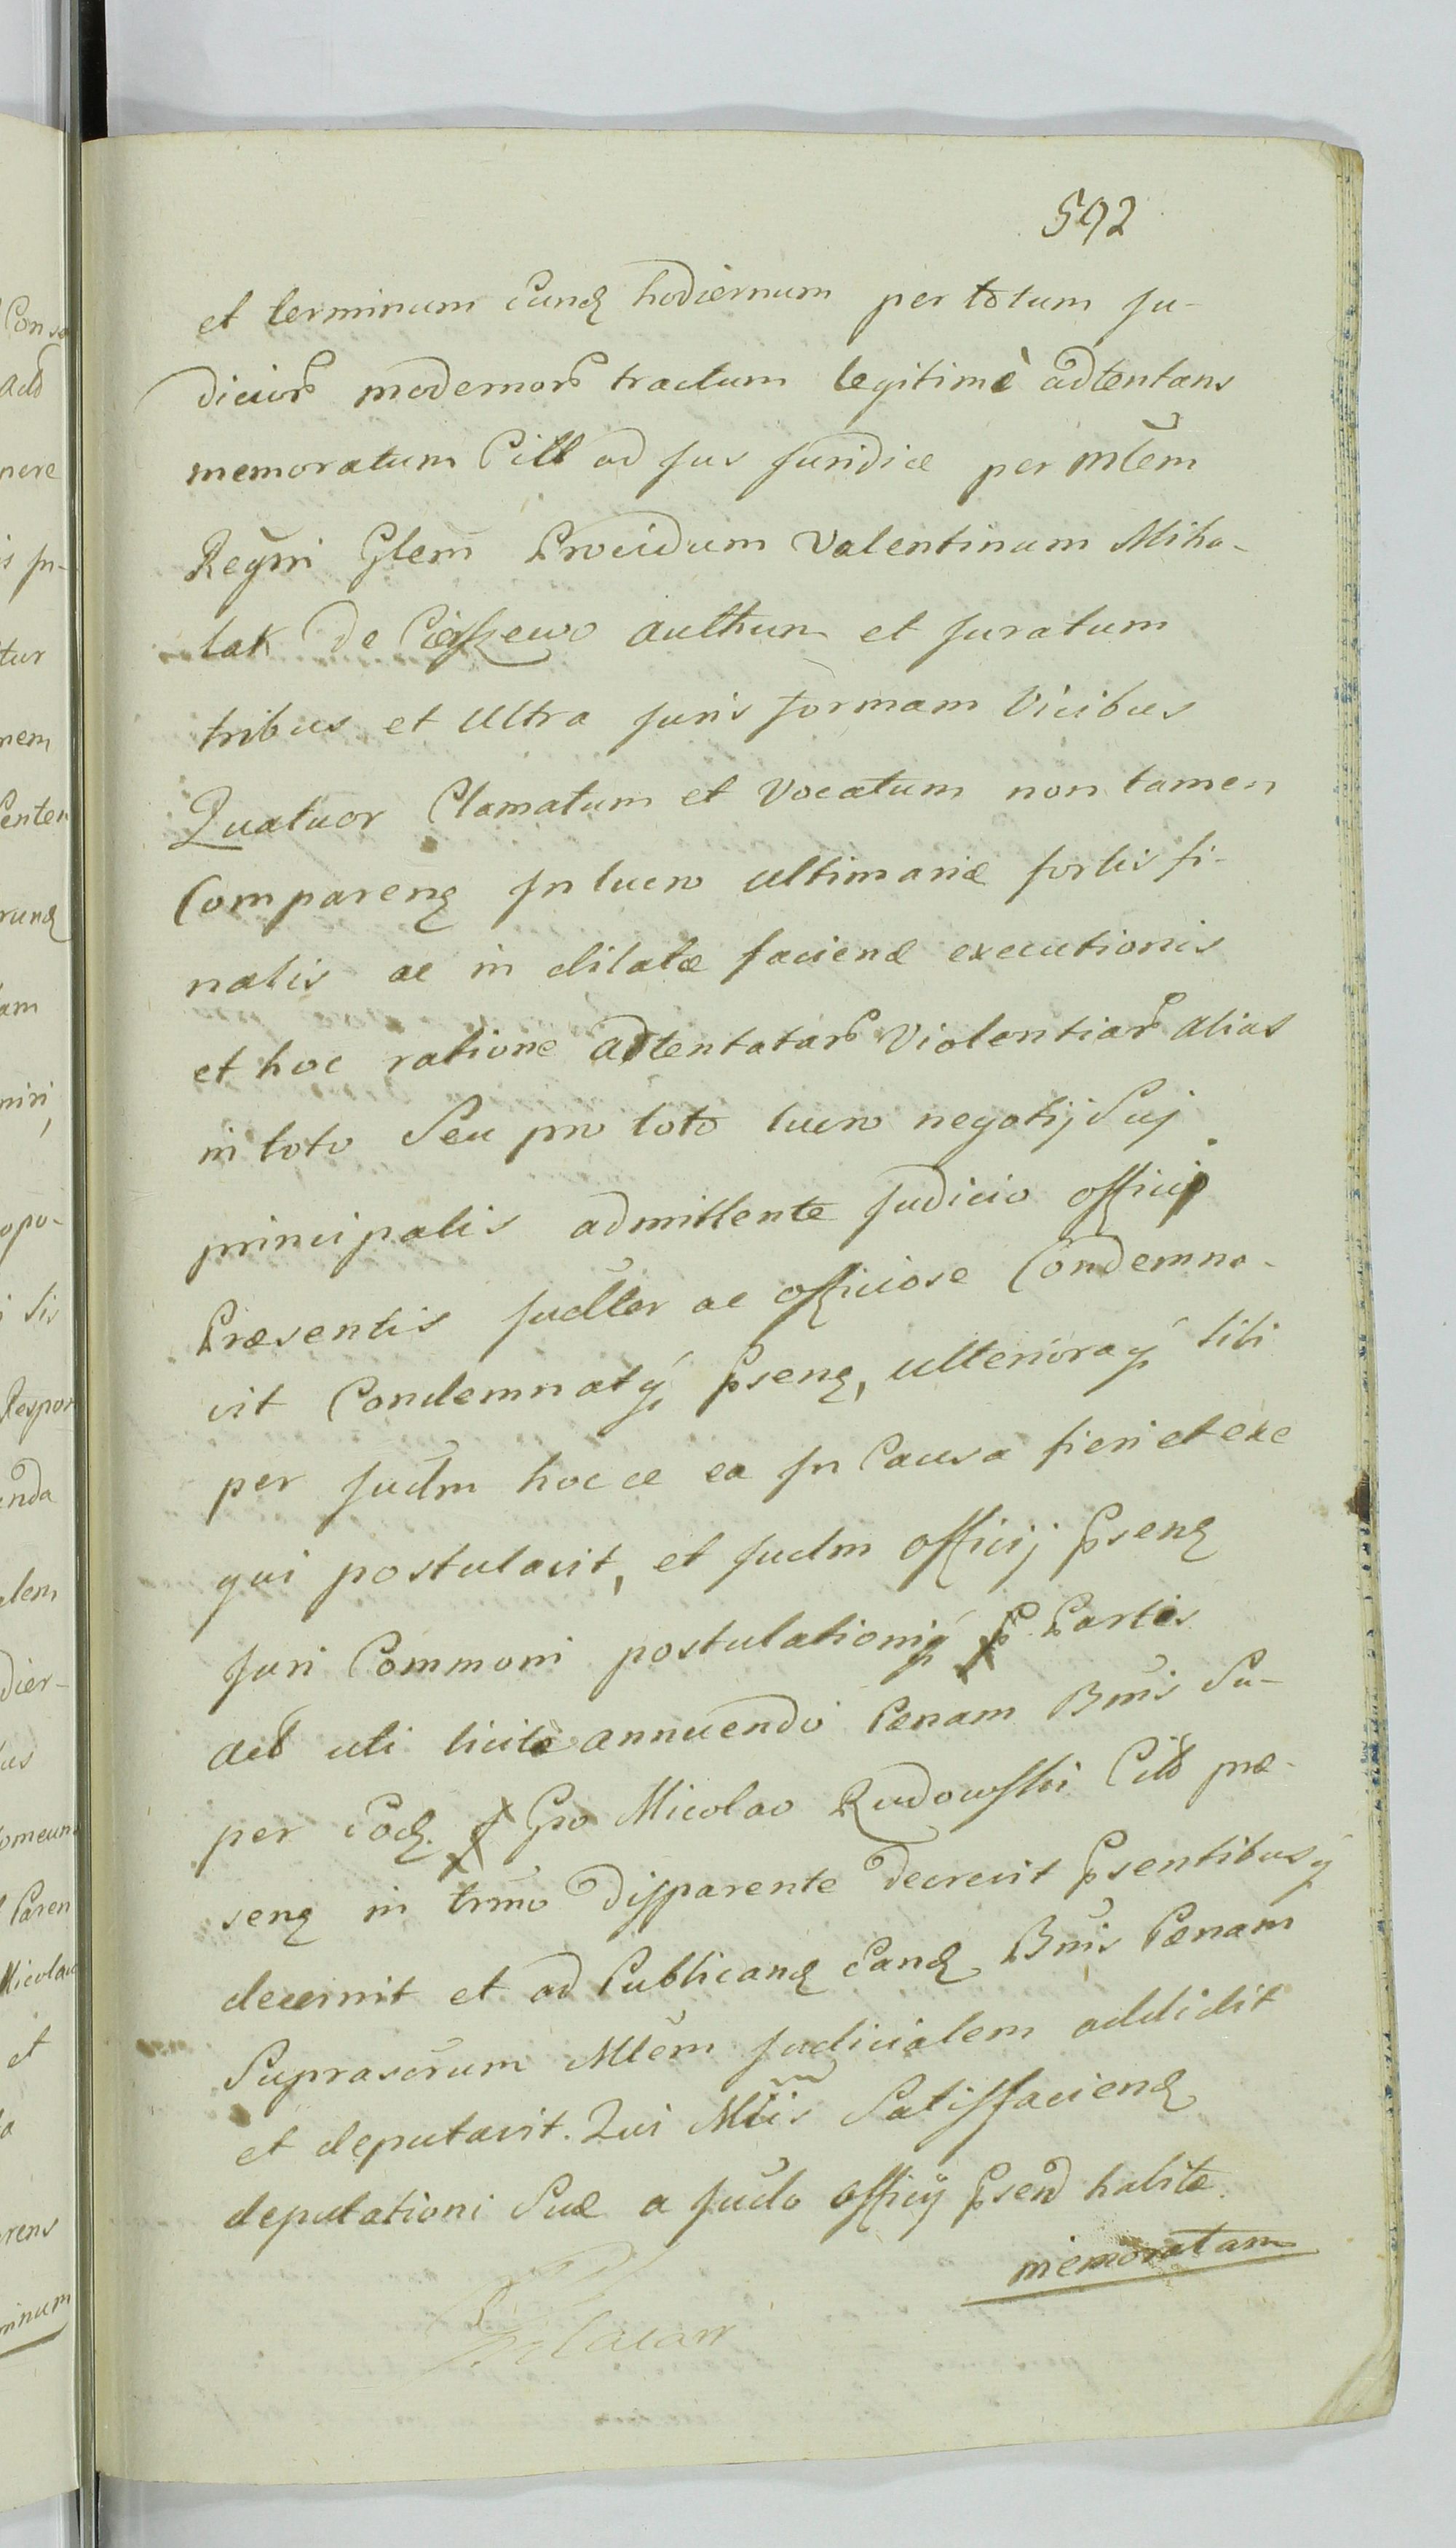 592
et terminum eund hodiernum per totum Ju-
dicior modernor tractum legitimè adtentans
memoratum Citt ad Jus Juridice per Mlem
Regni Glem Providum Valentinum Miha-
lak de authum et Juratum
tribus et ultra Juris formam Vicibus
Quatuor Clamatum et Vocatum non tamen
Comparenz In lucro ultimariæ sortis fi-
nalis ac in dilatæ faciend executionis
et hoc ratione adtentatar Violentiar alias
in toto Seu pro toto lucro negotij Sui
principalis admittente Judicio officij
Præsentis Judlter ac officiose Condemna-
vit Condemnatq psenz, ulterioraq sibi
per Judm hocce ea In Causa fieri et exe
qui postulavit, et Judm officij psenz
Juri Communi postulationiq P Partis
Act uti licitè annuendo Pænam Bnis Su-
per eod. Gro Micolao Rudowski Citt præ-
senz in trmo disparente decrevit psentibusq
decernit et ad Publicand eand Bnis Pænam
Suprascrum Mlem Judicialem addidit
et deputavit. Qui Mlis Satisfaciend
deputationi Suæ a Judo officij psend habitæ
memoratam
Cons
Act
nere
is In-
tur
nem
rund
am
niri,
opo-
Respon
enda
dier-
Paren
Nicolau
et
rens
minum